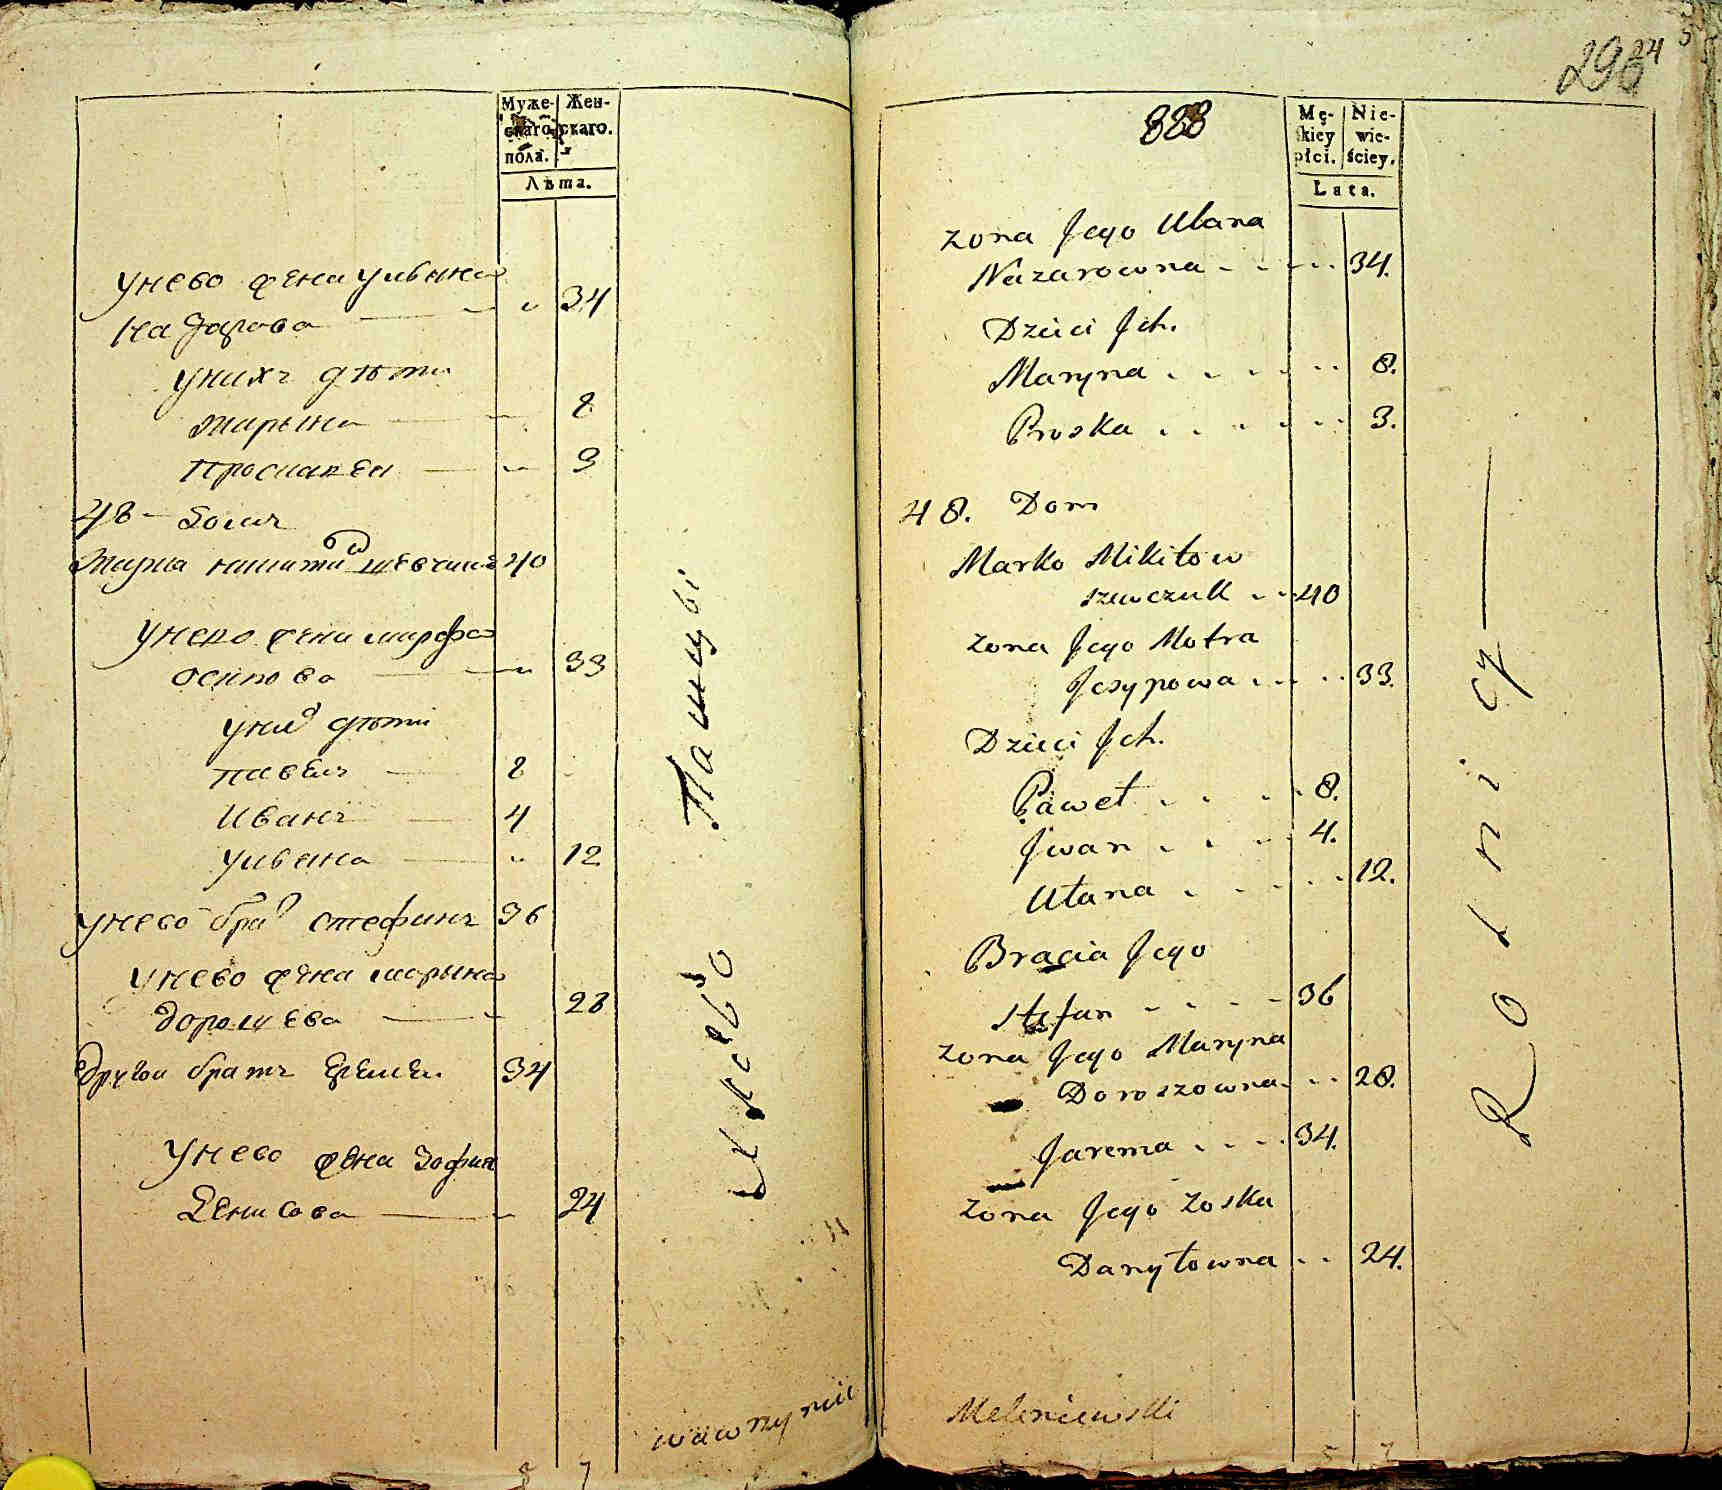 Муже-
скаго
пола.
Жен-
скаго.
Лѣта.
унево жена улъяна
Назарова 34
унихъ дѣти
Марына 8
Проскавея 3
48 домъ
Марко Никитин Шевчикъ 40
унево жена Марфа
Осипова 33
уних дѣти
Павелъ 8
Иванъ 4
Ульяна 12
унево брат Стефанъ 36
унево жена Марына
Дорошева 28
другой братъ Еремей 34
унево жена Зофия
Денисова 24
Пашцы
wawrzyniec
5 7
296
24
5
888
Mę-
skiey
płci.
Nie-
wie-
ściey.
Lata.
Zona Jego Ulana
Nazarowna 34.
Dzieci Jch.
Maryna 8.
Proska 3.
48. Dom
Marko Mikitow
szewczuk 40
Zona Jego Motra
Jesypowa 33.
Dzieci Jch.
Paweł 8.
Jwan 4.
Ulana 12.
Bracia Jego
Stefan 36
Zona Jego Maryna
Doroszowna 28.
Jarema 34.
Zona Jego Zoska
Danyłowna 24.
Rolnicy
Meleniewski
5 7